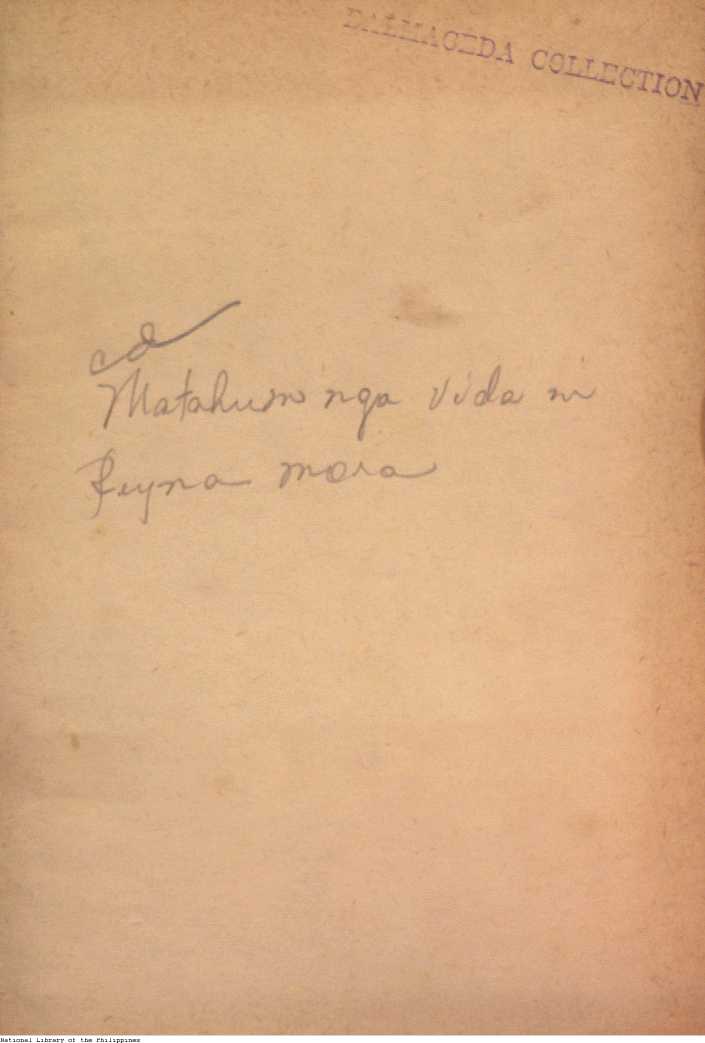 DALMACEDA COLLECTION
Matahum nga vida ni
Reyna mora
National Library of the Philippines